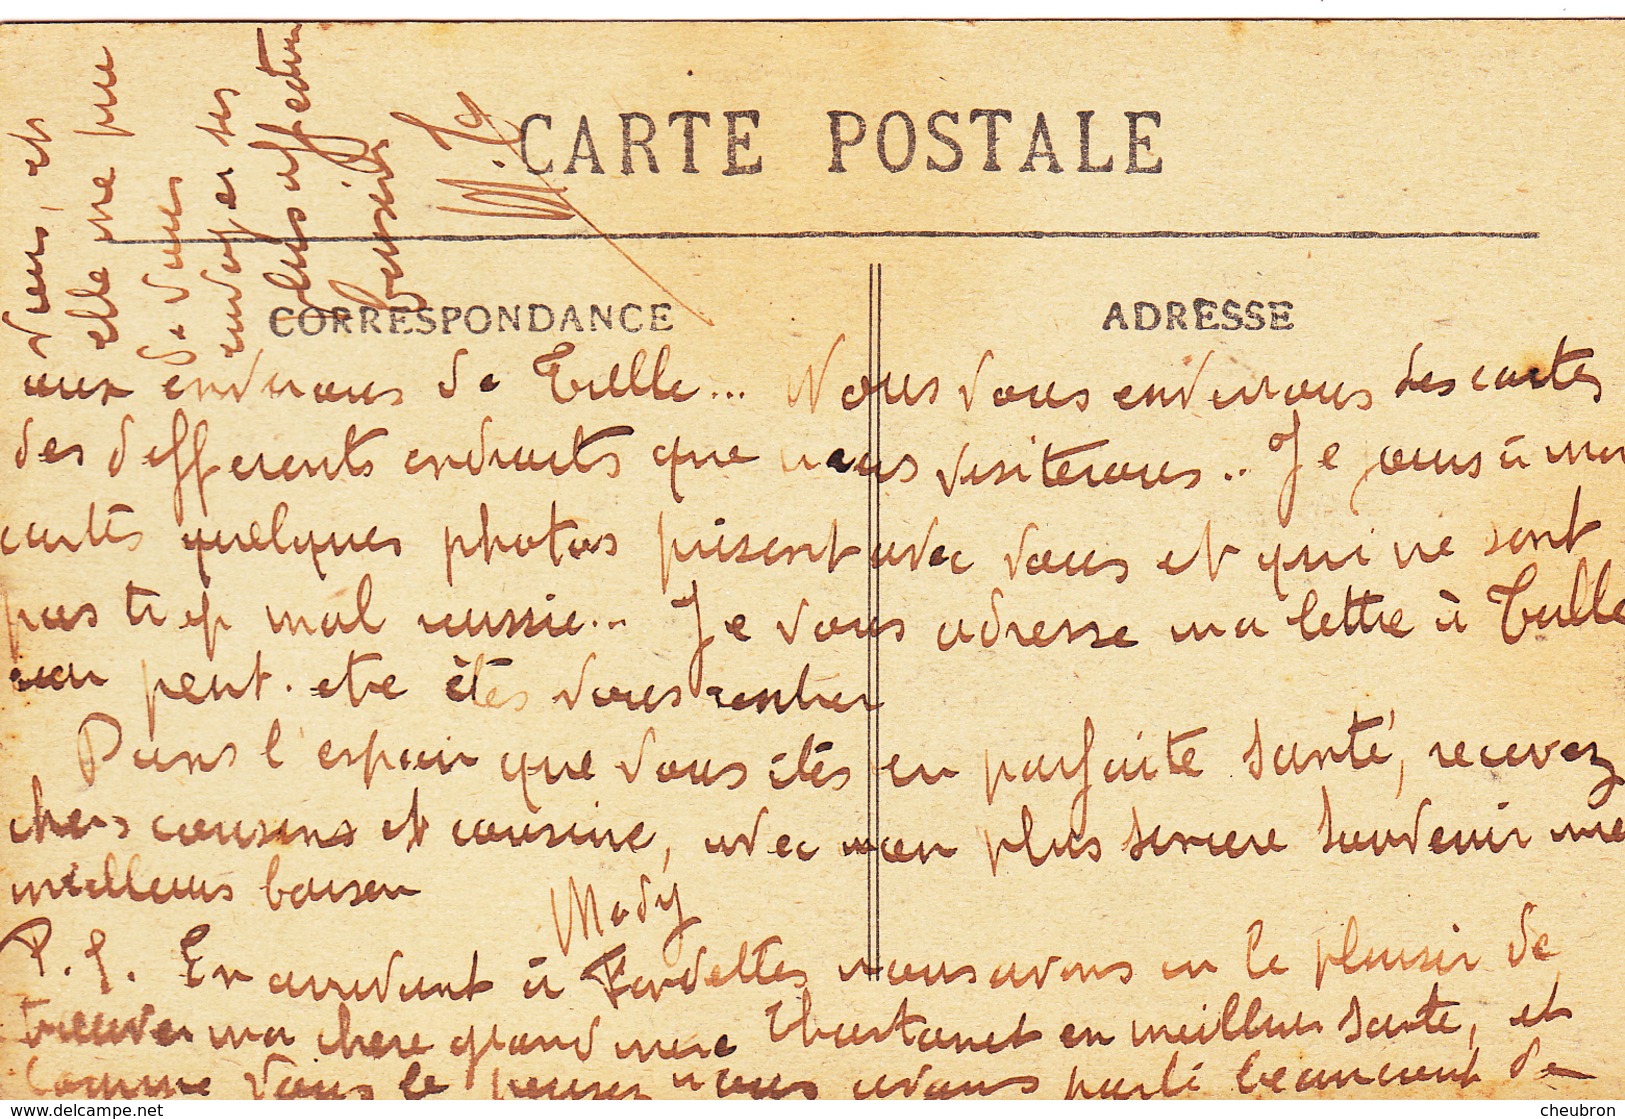 CARTE POSTALE
CORRESPONDANCE
ADRESSE
aux environs de Tulle... Nous vous enverrons des cartes
des differents endroits que nous visiterons.. Je joins à ma
carte quelques photos prisent avec vous et qui ne sont
pas trop mal reussie... Je vous adresse ma lettre à Tulle
car peut-etre êtes vous rentrer
Dans l'espoir que vous êtes en parfaite santé, recevez
chers cousins et cousine, avec mon plus sincere souvenir mes
meilleurs baisers
Mady
P.S. En arrivant à nous avons eu le plaisir de
trouver ma chere grand mere Chastanet en meilleur sante, et
comme vous le pensez nous avons parlé beaucoup de
vous, et
elle me prie
de vous
envoyer ses
plus affectueux
baisers
cheubron - www.delcampe.net